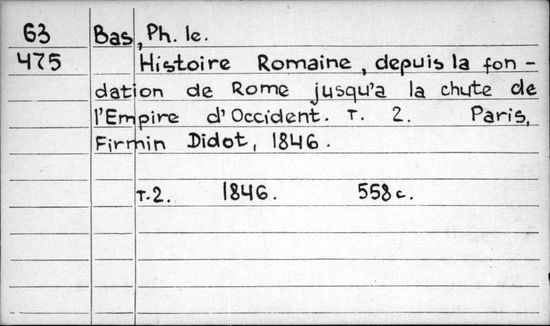 63 Bas, Ph. le.
475 Histoire Romaine, depuis la fon-
dation de Rome jusqu'a la chute de
l'Empire d'Occident. T. 2. Paris,
Firmin Didot, 1846.
T.2. 1846. 558 c.